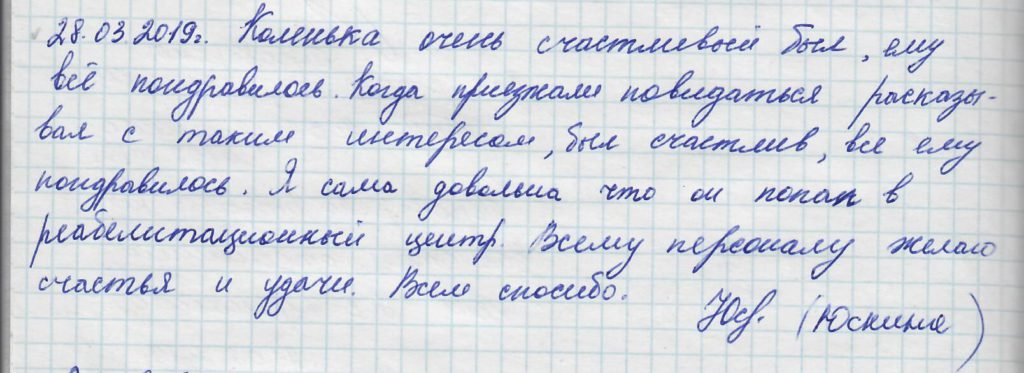 28.03.2019г. Коленька очень счастливый был, ему
всё пондравилось. Когда приезжали повидаться расказы-
вал с таким интересом, был счастлив, все ему
пондравилось. Я сама довольна что он попал в
реабелитационный центр. Всему персоналу желаю
счастья и удачи. Всем спосибо.
(Юскина)